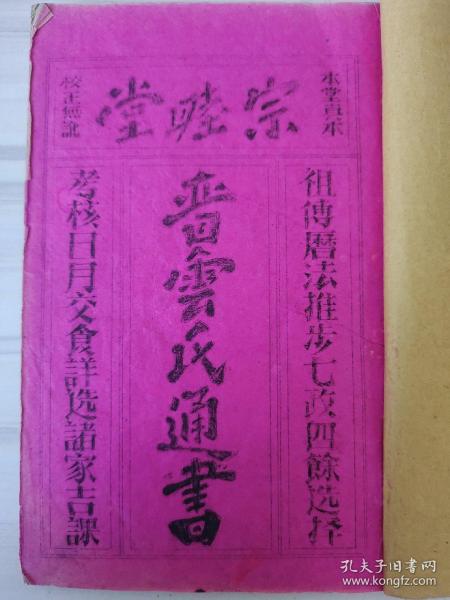 本堂真本
宗睦堂
校正無訛
祖傳曆法推步七政四餘选择
晋雲氏通書
考核日月交食詳选諸家吉課
孔夫子旧书网